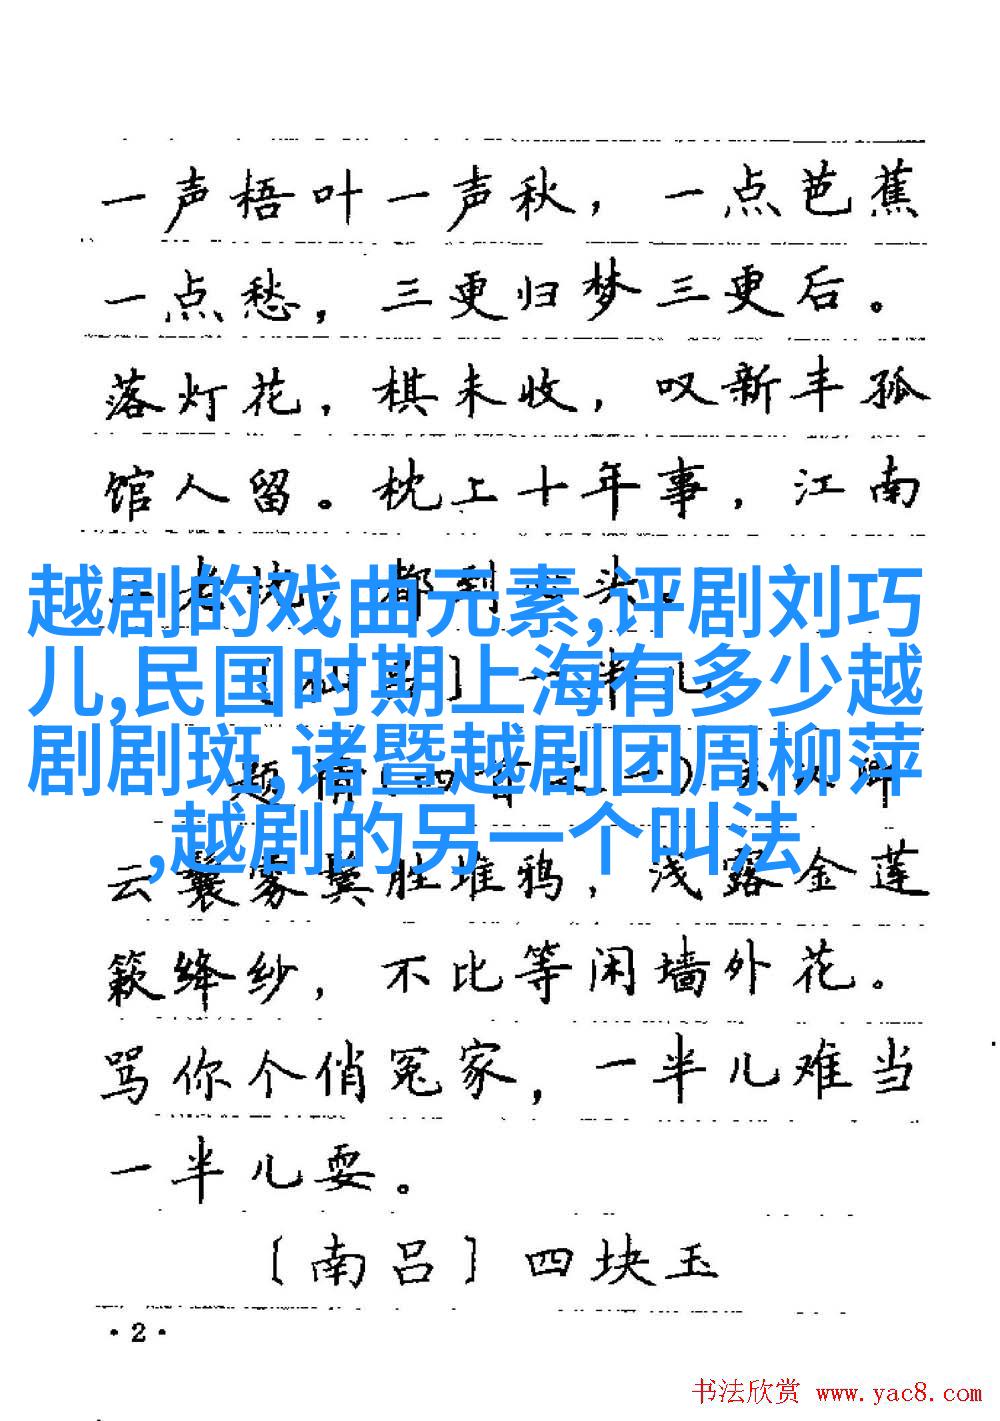 一声梧叶一声秋，一点芭蕉
一点愁，三更归梦三更后。
落灯花，棋未收，叹新丰孤
馆人留。枕上十年事，江南
老 都到 头
越剧的戏曲元素,评剧刘巧
儿,民国时期上海有多少越
剧剧斑,诸暨越剧团周柳萍
,越剧的另一个叫法
云鬟雾鬓胜堆鸦，浅露金莲
簌绛纱，不比等闲墙外花。
骂你个俏冤家，一半儿难当
一半儿耍。
〔南吕〕四块玉
·2·
书法欣赏 www.yac8.com